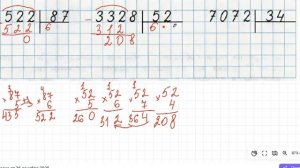 522 | 87   - 3328 | 52   7072 | 34
522 | 6   312 | 6 · ·
0   208
×87 ×87   ×52 ×52 ×52 ×52
5 6   5 6 7 4
435 522   260 312 364 208